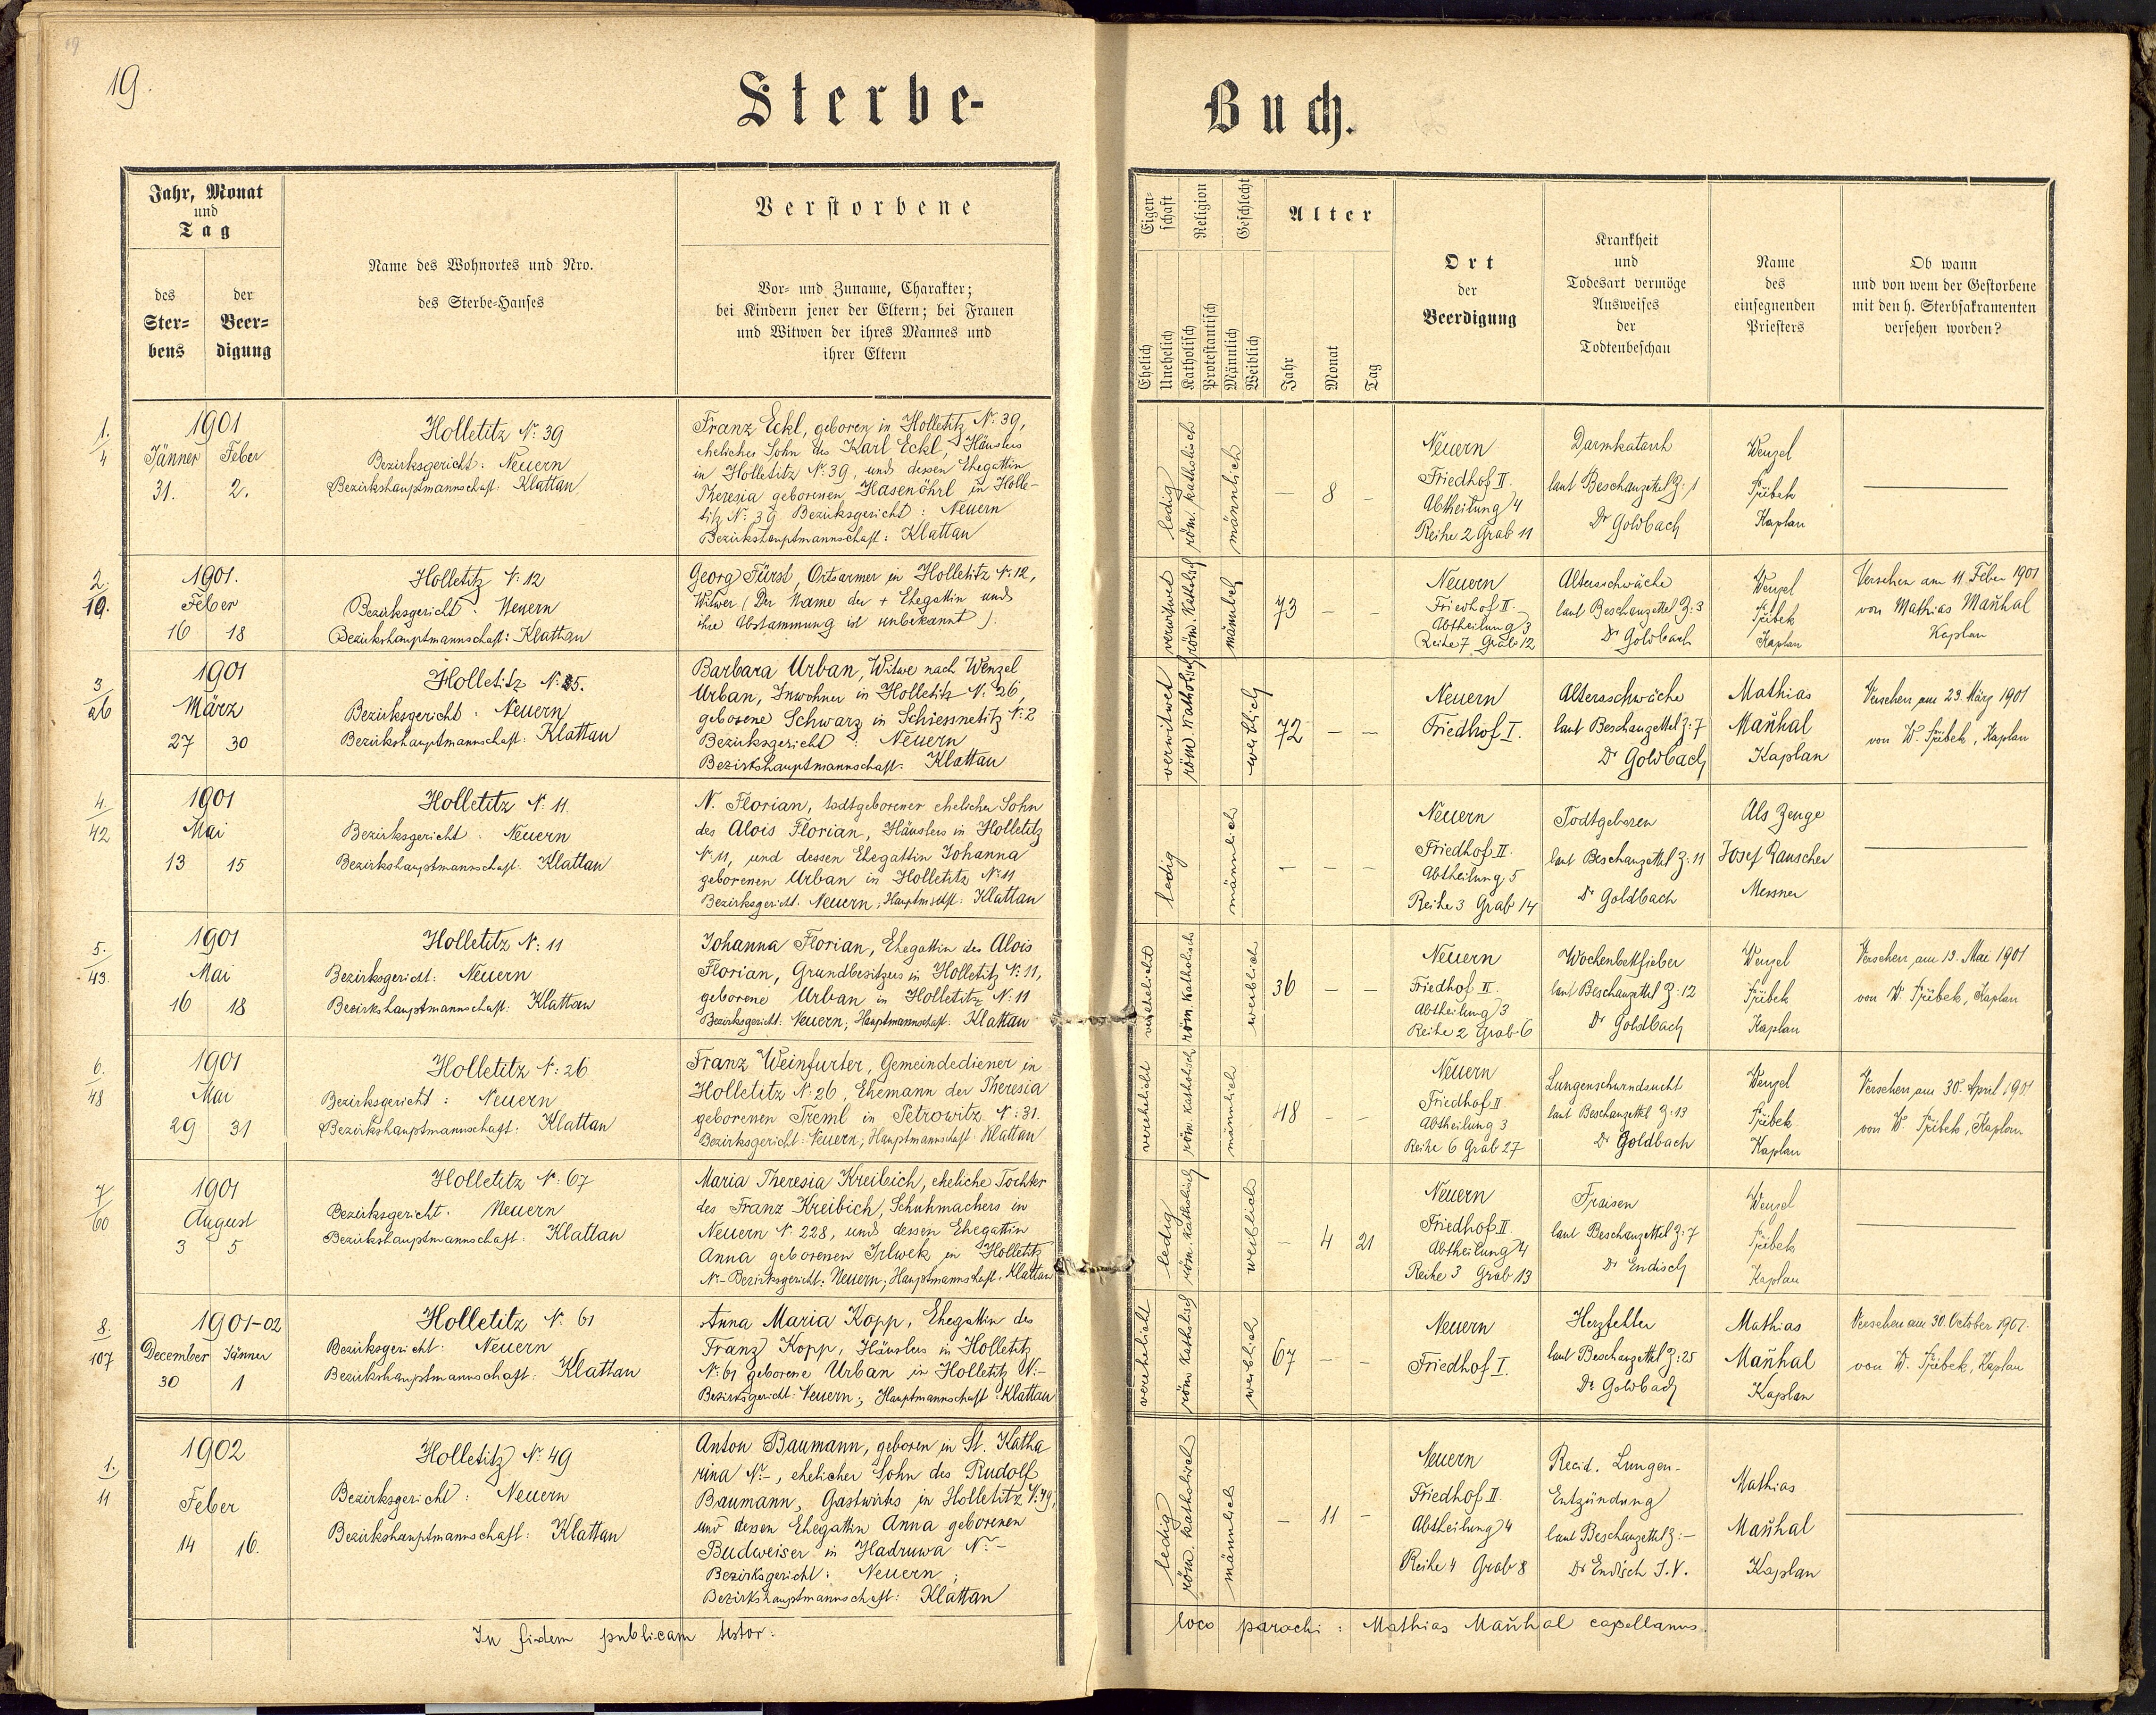 19.
Sterbe-Buch.
Jahr, Monat
und
Tag
des
Ster-
bens
der
Beer-
digung
Name des Wohnortes und Nro.
des Sterbe-Hauses
Verstorbene
Vor- und Zuname, Charakter;
bei Kindern jener der Eltern; bei Frauen
und Witwen der ihres Mannes und
ihrer Eltern
Eigen-
schaft
Ehelich
Unehelich
Religion
Katholisch
Protestantisch
Geschlecht
Männlich
Weiblich
Alter
Jahr
Monat
Tag
Ort
der
Beerdigung
Krankheit
und
Todesart vermöge
Ausweises
der
Todtenbeschau
Name
des
einsegnenden
Priesters
Ob wann
und von wem der Gestorbene
mit den h. Sterbsakramenten
versehen worden?
1.
4
1901
Jänner Feber
31. 2.
Holletitz N: 39
Bezirksgericht: Neuern
Bezirkshauptmannschaft: Klattau
Franz Eckl, geboren in Holletitz N: 39,
ehelicher Sohn des Karl Eckl, Häuslers
in Holletitz N: 39, und dessen Ehegattin
Theresia geborenen Hasenöhrl in Holle-
titz N: 39 Bezirksgericht: Neuern
Bezirkshauptmannschaft: Klattau
ledig
röm. katholisch
männlich
— 8 —
Neuern
Friedhof II.
Abtheilung 4
Reihe 2 Grab 11
Darmkatarrh
laut Beschauzettel Z: 1
Dr Goldbach
Wenzel
Přibek
Kaplan
—
2.
19.
1901.
Feber
16 18
Holletitz N: 12
Bezirksgericht: Neuern
Bezirkshauptmannschaft: Klattau
Georg Fürst, Ortsarmer in Holletitz N: 12,
Witwer (Der Name der + Ehegattin und
ihre Abstammung ist unbekannt).
verwitwet
röm. katholisch
männlich
73 — —
Neuern
Friedhof II.
Abtheilung 3
Reihe 7 Grab 12
Altersschwäche
laut Beschauzettel Z: 3
Dr Goldbach
Wenzel
Přibek
Kaplan
Versehen am 11. Feber 1901
von Mathias Maňhal
Kaplan
3
26
1901
März
27 30
Holletitz N: 25.
Bezirksgericht: Neuern
Bezirkshauptmannschaft: Klattau
Barbara Urban, Witwe nach Wenzel
Urban, Inwohner in Holletitz N: 26,
geborene Schwarz in Schiessnetitz N: 2
Bezirksgericht: Neuern
Bezirkshauptmannschaft: Klattau
verwitwet
röm. katholisch
weiblich
72 — —
Neuern
Friedhof I.
Altersschwäche
laut Beschauzettel Z: 7
Dr Goldbach
Mathias
Maňhal
Kaplan
Versehen am 23. März 1901
von W. Přibek, Kaplan
4
42
1901
Mai
13 15
Holletitz N: 11.
Bezirksgericht: Neuern
Bezirkshauptmannschaft: Klattau
N. Florian, todtgeborener ehelicher Sohn
des Alois Florian, Häuslers in Holletitz
N: 11, und dessen Ehegattin Johanna
geborenen Urban in Holletitz N: 11
Bezirksgericht: Neuern; Hauptmschft: Klattau
ledig
männlich
— — —
Neuern
Friedhof II.
Abtheilung 5
Reihe 3 Grab 14
Todtgeboren
laut Beschauzettel Z: 11
Dr Goldbach
Als Zeuge
Josef Rauscher
Messner
—
5.
43.
1901
Mai
16 18
Holletitz N: 11
Bezirksgericht: Neuern
Bezirkshauptmannschaft: Klattau
Johanna Florian, Ehegattin des Alois
Florian, Grundbesitzers in Holletitz N: 11,
geborene Urban in Holletitz N: 11
Bezirksgericht: Neuern; Hauptmannschaft: Klattau
verehelicht
röm. katholisch
weiblich
36 — —
Neuern
Friedhof II.
Abtheilung 3
Reihe 2 Grab 6
Wochenbettfieber
laut Beschauzettel Z: 12
Dr Goldbach
Wenzel
Přibek
Kaplan
Versehen am 13. Mai 1901
von W. Přibek, Kaplan
6.
48
1901
Mai
29 31
Holletitz N: 26
Bezirksgericht: Neuern
Bezirkshauptmannschaft: Klattau
Franz Weinfurter, Gemeindediener in
Holletitz N: 26, Ehemann der Theresia
geborenen Treml in Petrowitz N: 31.
Bezirksgericht: Neuern; Hauptmannschaft: Klattau
verehelicht
röm. katholisch
männlich
48 — —
Neuern
Friedhof II.
Abtheilung 3
Reihe 6 Grab 27
Lungenschwindsucht
laut Beschauzettel Z: 13
Dr Goldbach
Wenzel
Přibek
Kaplan
Versehen am 30. April 1901
von W. Přibek, Kaplan
7
60
1901
August
3 5
Holletitz N: 67
Bezirksgericht: Neuern
Bezirkshauptmannschaft: Klattau
Maria Theresia Kreibich, eheliche Tochter
des Franz Kreibich, Schuhmachers in
Neuern N: 228, und dessen Ehegattin
Anna geborenen Irlwek in Holletitz
N:- Bezirksgericht: Neuern; Hauptmannschaft: Klattau
ledig
röm. katholisch
weiblich
— 4 21
Neuern
Friedhof II
Abtheilung 4
Reihe 3 Grab 13
Fraisen
laut Beschauzettel Z: 7
Dr Endisch
Wenzel
Přibek
Kaplan
—
8.
107
1901-02
December Jänner
30 1
Holletitz N: 61
Bezirksgericht: Neuern
Bezirkshauptmannschaft: Klattau
Anna Maria Kopp, Ehegattin des
Franz Kopp, Häuslers in Holletitz
N: 61 geborene Urban in Holletitz N:-
Bezirksgericht: Neuern; Hauptmannschaft: Klattau
verehelicht
röm. katholisch
weiblich
67 — —
Neuern
Friedhof I.
Herzfehler
laut Beschauzettel Z: 25
Dr Goldbach
Mathias
Maňhal
Kaplan
Versehen am 30. October 1901.
von W. Přibek, Kaplan
1.
11
1902
Feber
14 16.
Holletitz N: 49
Bezirksgericht: Neuern
Bezirkshauptmannschaft: Klattau
Anton Baumann, geboren in St. Katha
rina N:-, ehelicher Sohn des Rudolf
Baumann, Gastwirts in Holletitz N: 49,
und dessen Ehegattin Anna geborenen
Budweiser in Hadruwa N:-
Bezirksgericht: Neuern;
Bezirkshauptmannschaft: Klattau
ledig
röm. katholisch
männlich
— 11 —
Neuern
Friedhof II.
Abtheilung 4
Reihe 4 Grab 8
Recid. Lungen-
Entzündung
laut Beschauzettel Z: —
Dr Endisch I. V.
Mathias
Maňhal
Kaplan
—
In fidem publicam testor:
loco parochi: Mathias Maňhal capellanus.